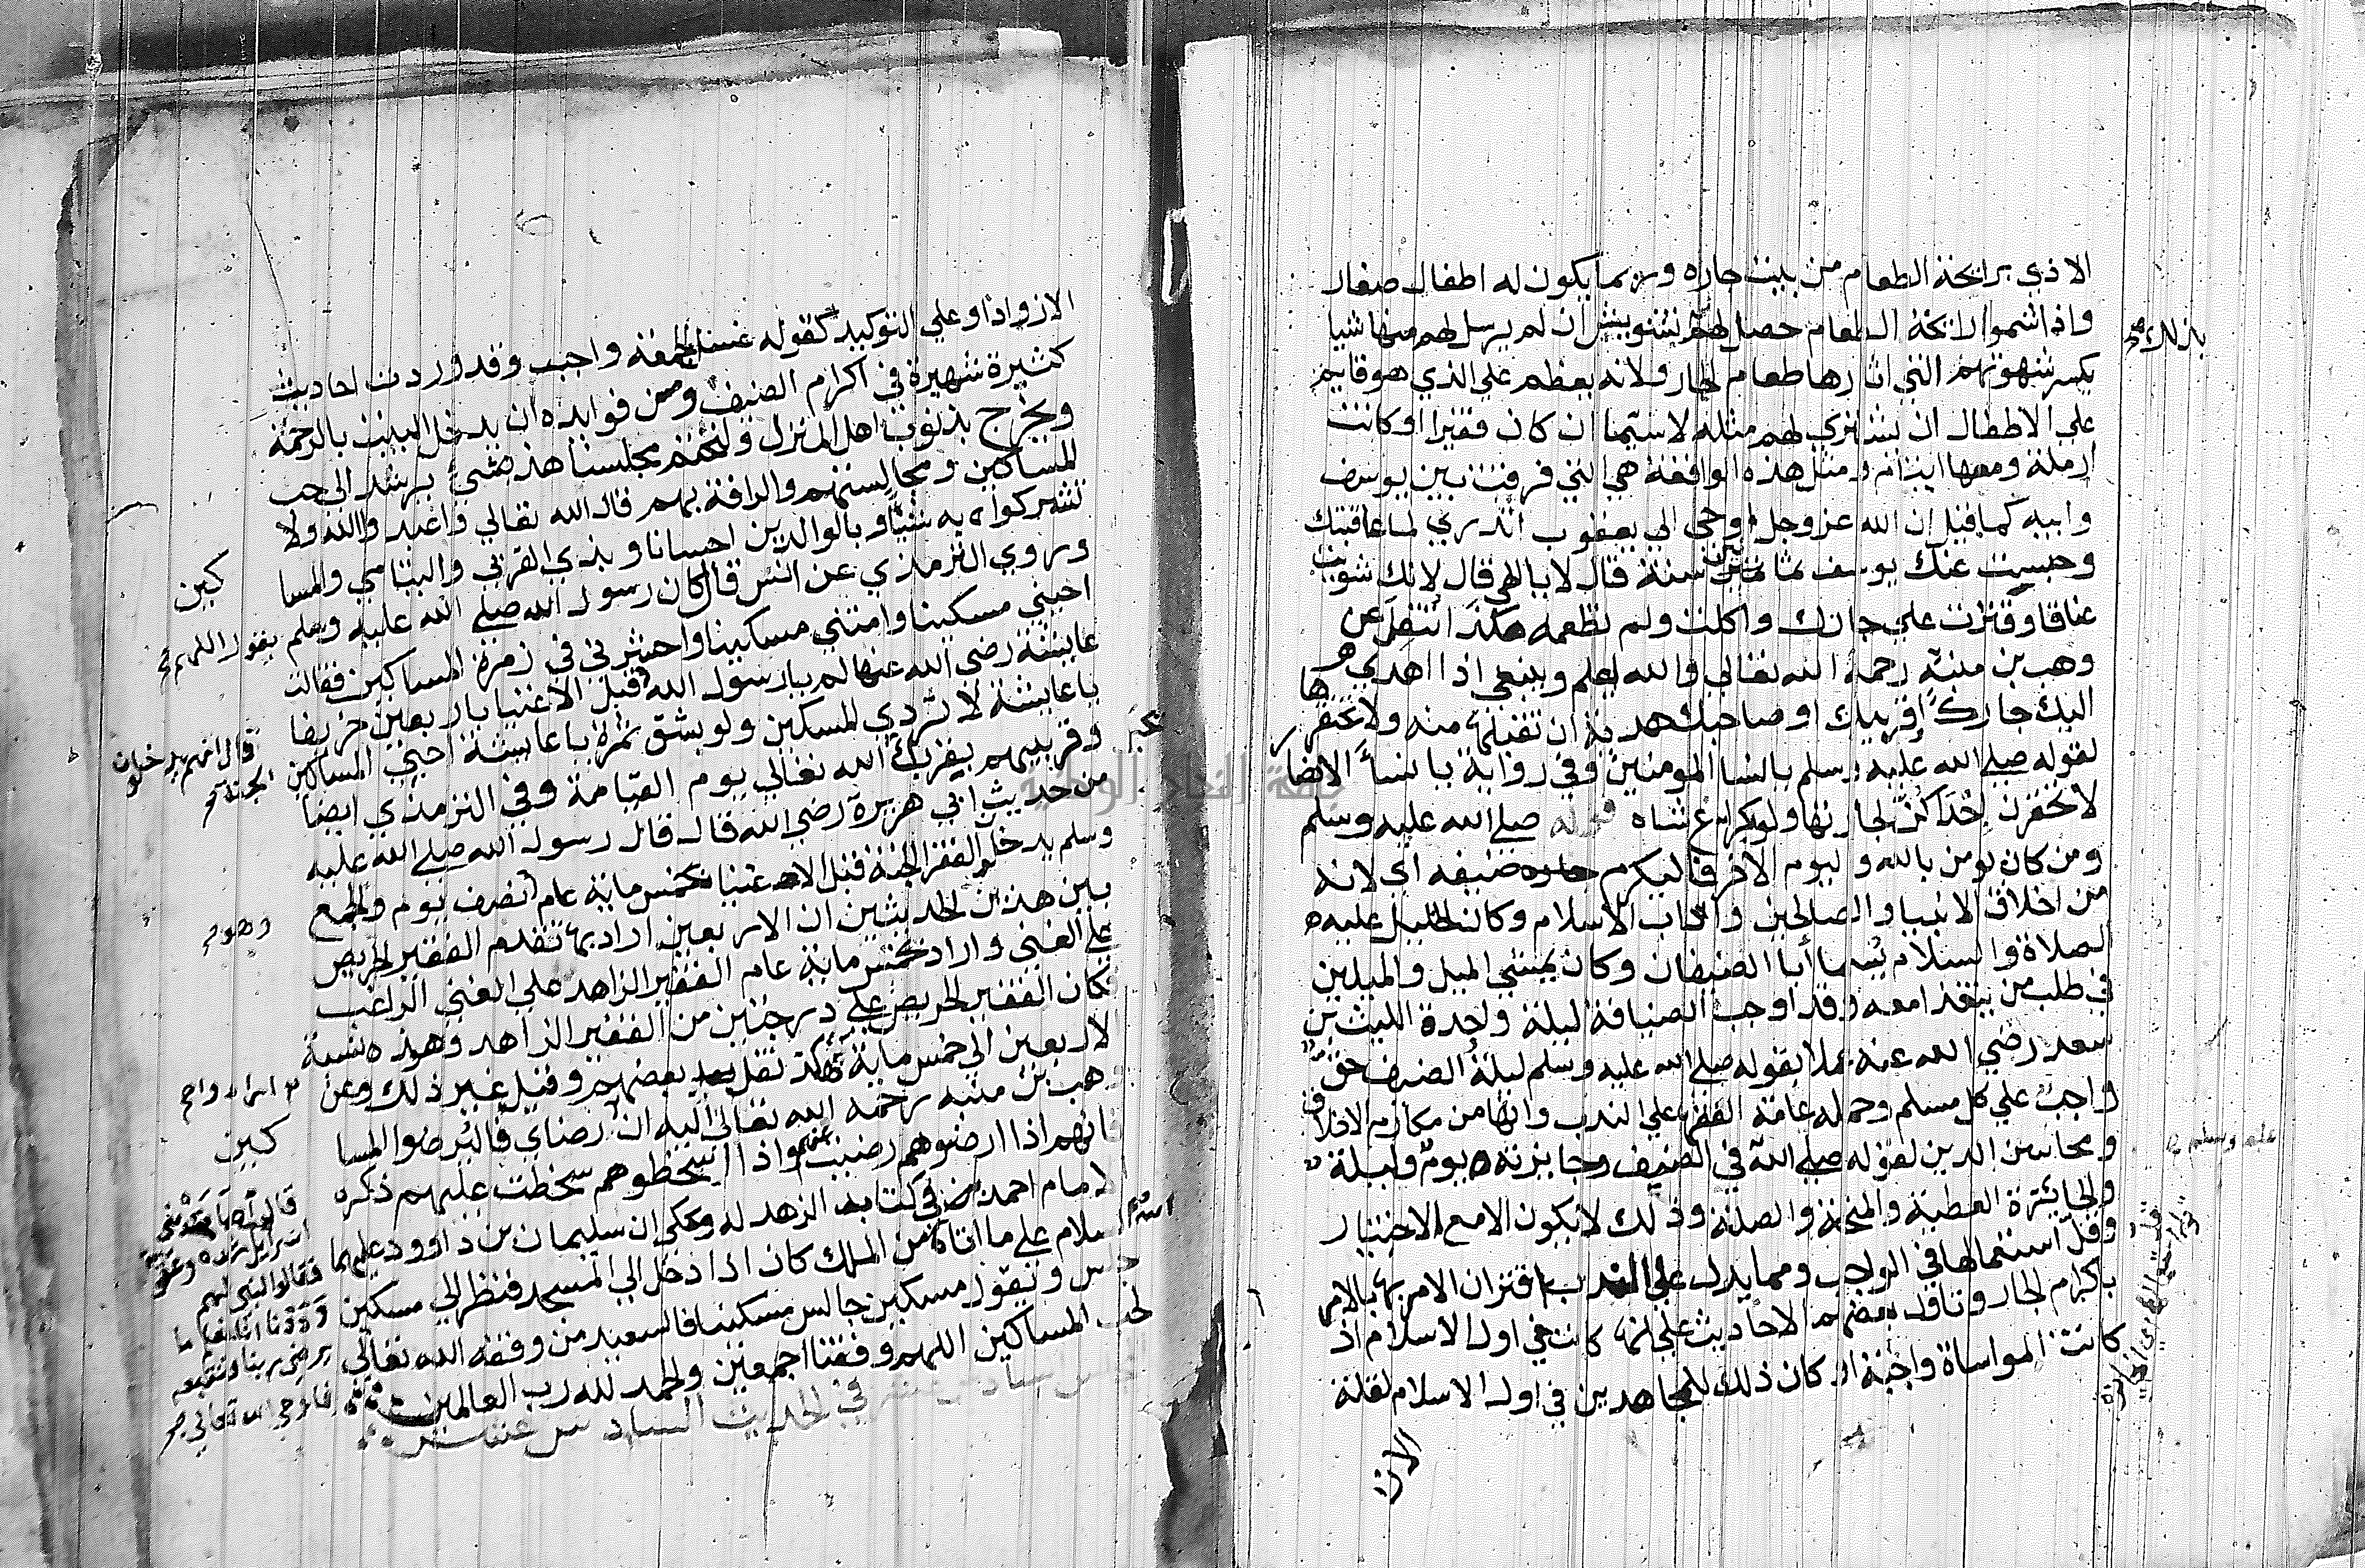 الاذي برايحة الطعام من بيت جاره وربما يكون له اطفال صغار
واذا شموا رائحة الطعام حصل لهم تشويش ان لم يرسل لهم منها شيا
بذلك صح
يكسر شهوتهم التي اثارها طعام الجار ولانه يعظم علي الذي هو قايم
علي الاطفال ان يشتري لهم مثله لا سيما ان كان فقيرا او كانت
ارملة ومعها ايتام ومثل هذه الواقعة هي التي فرقت بين يوسف
وابيه كما قيل ان الله عز وجل اوحي الي يعقوب اتدري لما عاقبتك
وحبست عنك يوسف ثمانين سنة قال لا يا الهي قال لانك شويت
عناقا وقترت علي جارك واكلت ولم تطعمه هكذا نقل عن
وهب بن منبه رحمه الله تعالي والله اعلم وينبغي اذا اهدي
اليك جارك او قريبك او صاحبك هدية ان تقبلها منه ولا تحتقرها
لقوله صلي الله عليه وسلم يا نسا المومنين وفي رواية يا نسأ الانصار
لا تحقرن احداكن لجارتها ولو كراع شاه قوله صلي الله عليه وسلم
ومن كان يومن بالله واليوم الاخر فاليكرم ضيفه اي لانه
من اخلاق الانبيا والصالحين واداب الاسلام وكان الخليل عليه
الصلاة والسلام يسما أبا الضيفان وكان يمشي الميل والميلين
في طلب من يتغدا معه وقد اوجب الضيافة ليلة واحدة الليث بن
سعد رضي الله عنه عملا بقوله صلي الله عليه وسلم ليلة الضيف حق
واجب علي كل مسلم وحمله عامة الفقها علي الندب وانها من مكارم الاخلاق
ومحاسن الدين لقوله صلي الله في الضيف وجايزته يوم وليلة
عليه وسلم
والجائزة العطية والمنحة والصلة وذلك لا يكون الا مع الاختيار
وقل استعمالها في الواجب ومما يدل علي الندب اقتران الامر بها بالامر
باكرام الجار وتاول بعضهم الاحاديث علي انها كانت في اول الاسلام اذ
كانت المواساة واجبة او كان ذلك للمجاهدين في اول الاسلام لقلة
الازواد
الازواد او علي التوكيد كقوله غسل الجمعة واجب وقد وردت احاديث
كثيرة شهيرة في اكرام الضيف ومن فوايده ان يدخل البيت بالرحمة
ويخرج بذنوب اهل المنزل ولنختم مجلسنا هذا بشئ يرشد الى حب
المساكين ومجالستهم والرافة بهم قال الله تعالي واعبدوا الله ولا
تشركوا به شيا وبالوالدين احسانا وبذي القربى واليتامي والمسا
كين
وروي الترمذي عن انس قال كان رسول الله صلي الله عليه وسلم يقول اللهم
احيني مسكينا وامتني مسكينا واحشرني في زمرة المساكين فقالت
عايشة رضي الله عنها لم يا رسول الله قبل الاغنيا باربعين خريفا
قال انهم يدخلون الجنة صح
يا عايشة لا تردي المسكين ولو بشق تمرة يا عايشة احبي المساكين
وقربيهم يقربك الله تعالي يوم القيامة وفي الترمذي ايضا
من حديث ابي هريرة رضي الله قال قال رسول الله صلي الله عليه
وسلم يدخل الفقرا الجنة قبل الاغنيا بخمس ماية عام نصف يوم والجمع
وهو صح
بين هذين الحديثين ان الاربعين اراد بها تقدم الفقير الحريص
علي الغني واراد بخمس ماية عام الفقير الزاهد علي الغني الراغب
فكان الفقير الحريص علي درجتين من الفقير الزاهد وهذه نسبة
الاربعين الي خمس ماية هكذا نقل بعضهم وقيل غير ذلك وعن
وهب بن منبه رحمه الله تعالي اليه ان رضاي فاليرضوا المسا
كين
فانهم اذا ارضوهم رضيت عنهم واذا اسخطوهم سخطت عليهم ذكره
الامام احمد في كتاب الزهد له وحكي ان سليمان بن داوود عليهما
السلام علي ما اتاه من الملك كان اذا دخل الي المسجد فنظر الي مسكين
جلس ويقول مسكين جالس مسكينا فالسعيد من وفقه الله تعالي
لحب المساكين اللهم وفقنا اجمعين والحمد لله رب العالمين
المجلس السادس عشر في الحديث السادس عشر